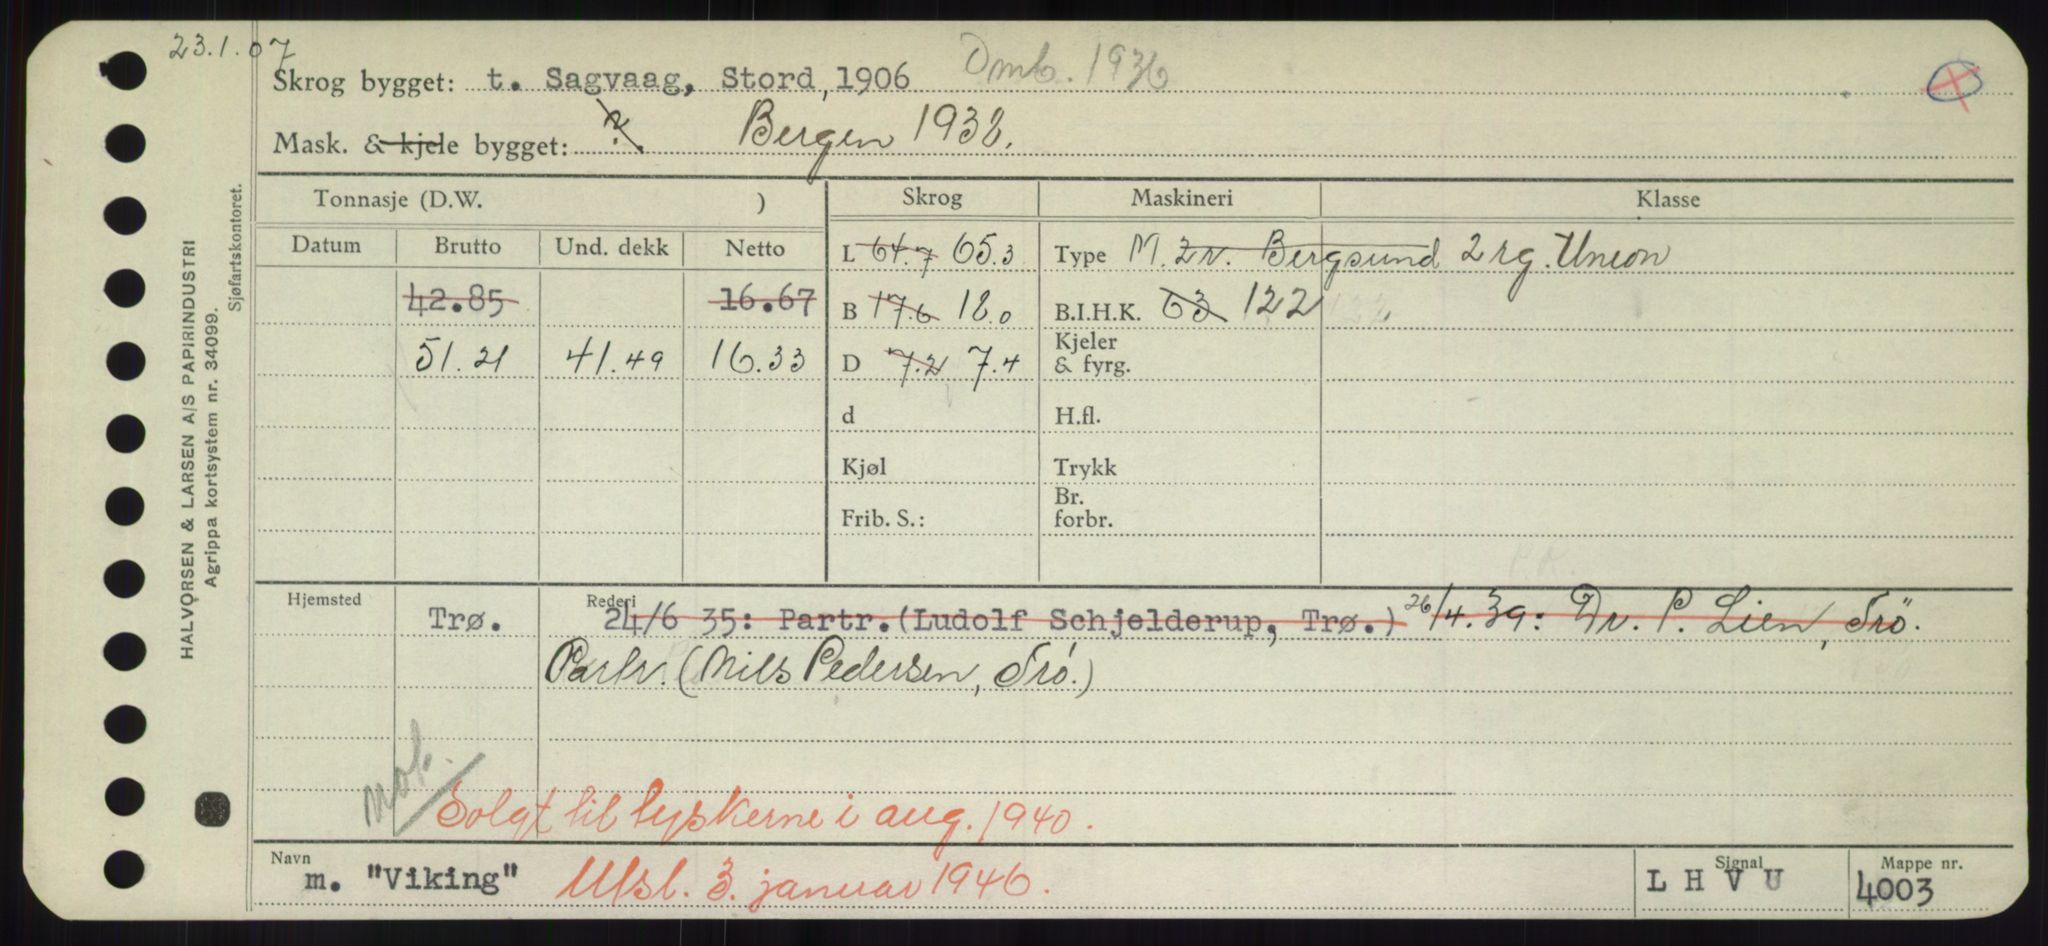 23.1.07
Omb. 1936
Skrog bygget: t. Sagvaag, Stord, 1906
Mask. & kjele bygget: ? Bergen 1938.
Tonnasje (D.W. ) Skrog Maskineri Klasse
Datum Brutto Und. dekk Netto
L 64.7 65.3 Type M. 2 v. Bergsund 2 rg. Union
42.85 16.67 B 17.6 18.0 B.I.H.K. 63 122
51.21 41.49 16.33 D 7.2 7.4 Kjeler & fyrg.
d H.fl.
Kjøl Trykk
Frib. S.: Br. forbr.
Hjemsted Trø. Rederi 24/6 35: Partr. (Ludolf Schjelderup, Trø.) 26/4.39: Dr. P. Lien, Trö.
Partr. (Nils Pedersen, Trö.)
Solgt til tyskerne i aug. 1940.
Navn m. "Viking" Utsl. 3. januar 1946. Signal L H V U Mappe nr. 4003
HALVORSEN & LARSEN A/S PAPIRINDUSTRI
Agrippa kortsystem nr. 34099.
Sjøfartskontoret.